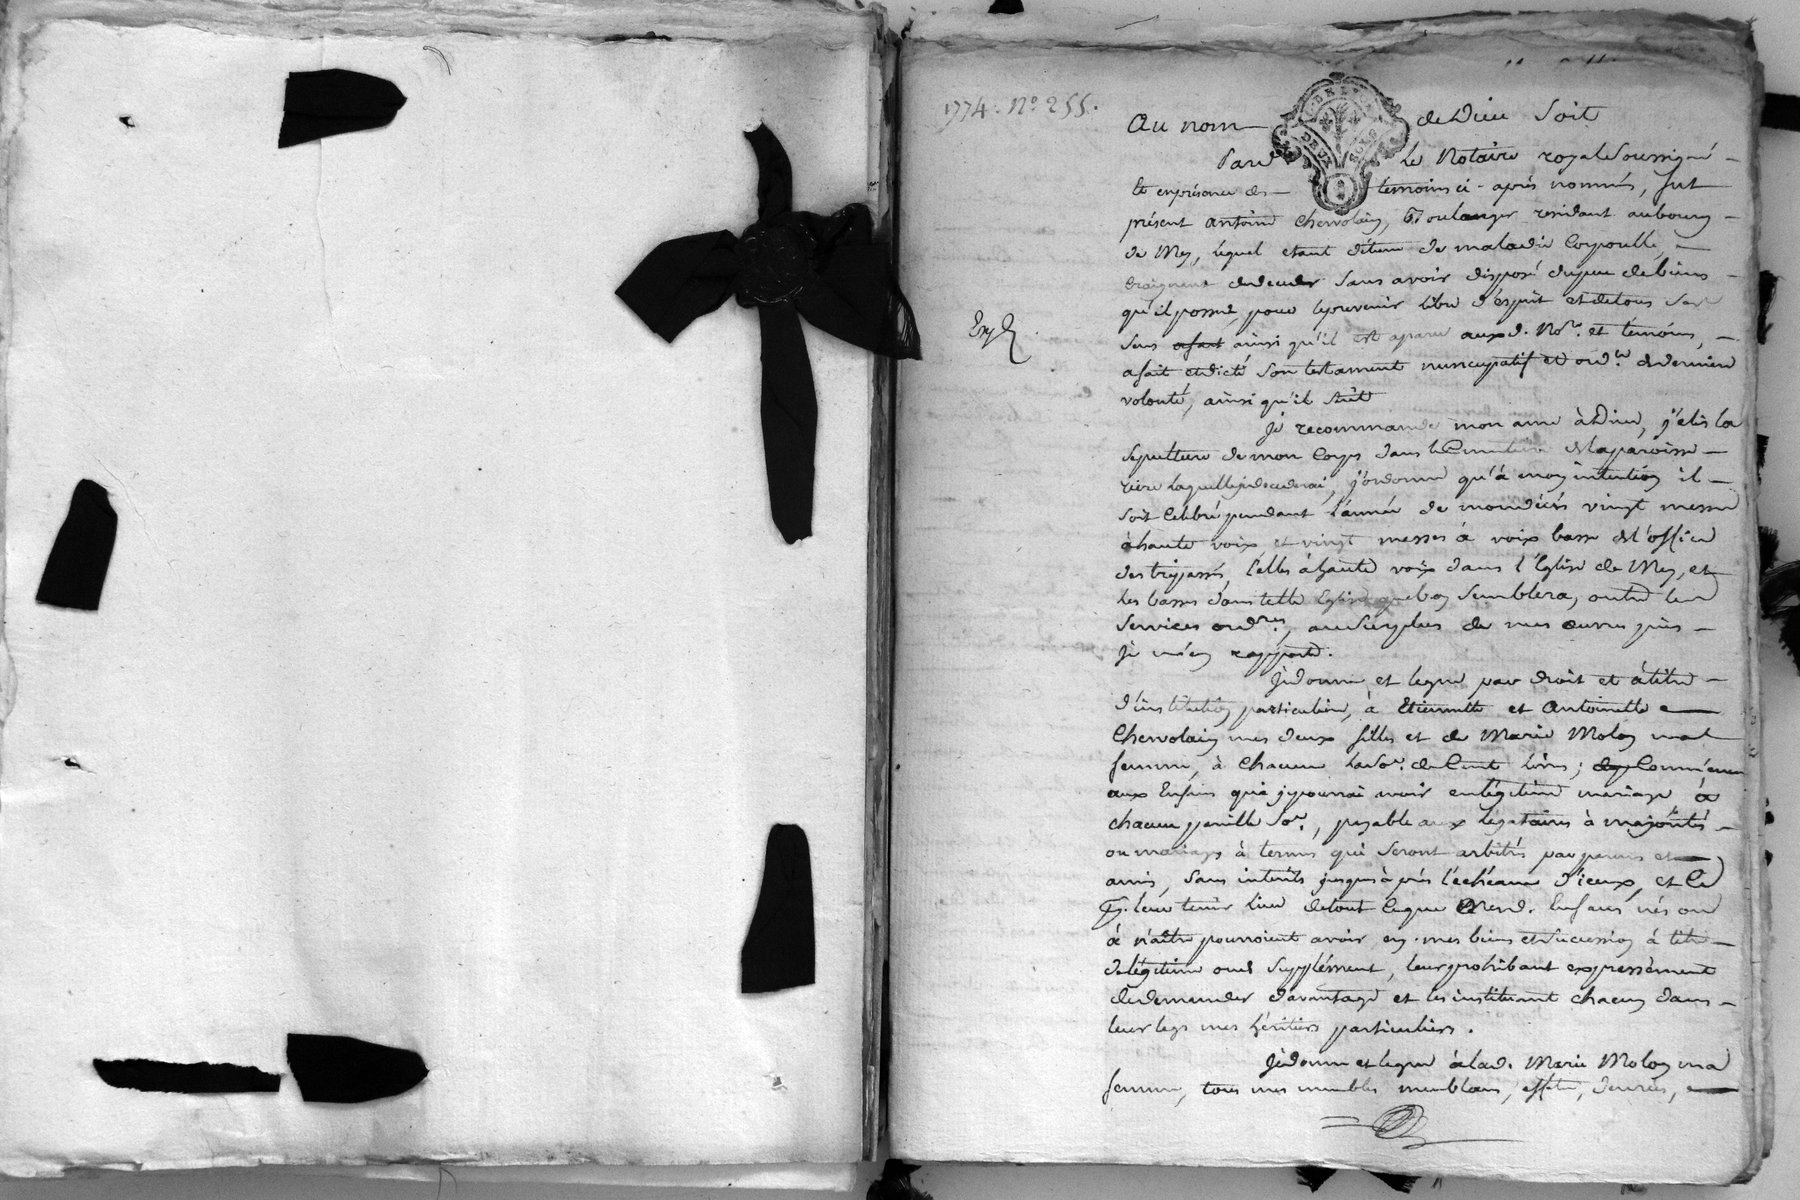 1774. N° 255.
Au nom de Dieu soit
Pard le Notaire royal soussigné
et en présence des temoins ci-après nommés, fut
présent Antoine Chervolain, Boulanger residant au bourg
de Mey, lequel etant détenu de maladie Corporelle,
Craignant de deceder sans avoir disposé du peu de biens
qu'il possede, pour le prevenir libre d'esprit et de tous ses
sens a fait ainsi qu'il est aparu auxd. Nore. et témoins,
a fait et dicté son testament nuncupatif et ordre. de derniere
volonté, ainsi qu'il suit
Exp
Je recommande mon ame à Dieu, j'elis la
sepulture de mon Corps dans le Cimetiere de la paroisse
riere laquelle je decederai, j'ordonne qu'à mon intention il
soit Celebré pendant l'année de mon décés vingt messes
à haute voix et vingt messes à voix basse de l'office
des trepassés, Celles à haute voix dans l'Eglise de Mey, et
les basses dans telle Eglise que bon semblera, outre les
services ordres., au surplus de mes œuvres pies
je m'en rapporte.
Je donne et legue par droit et à titre
d'institution particuliere, à Etiennette et Antoinette
Chervolain mes deux filles et de Marie Molon ma
femme, à chacune la Soe. de Cent livres; de Comme
aux Enfans que je pourrai avoir en légitime mariage à
chacun pareille soe., payable aux légataires à majorités
ou mariage à termes qui seront arbitrés par parens et
amis, sans interêts jusqu'après l'échéance d'iceux, et Ce
pr. leur tenir lieu de tout Ce que mesd. Enfans nés ou
à naître pourroient avoir en mes biens et succession à titre
de légitime ou de supplément, leur prohibant expressement
de demander davantage et les instituant chacun dans
leur legs mes héritiers particuliers.
Je donne et legue à lad. Marie Molon ma
femme, tous mes meubles meublans, effets, denrées,